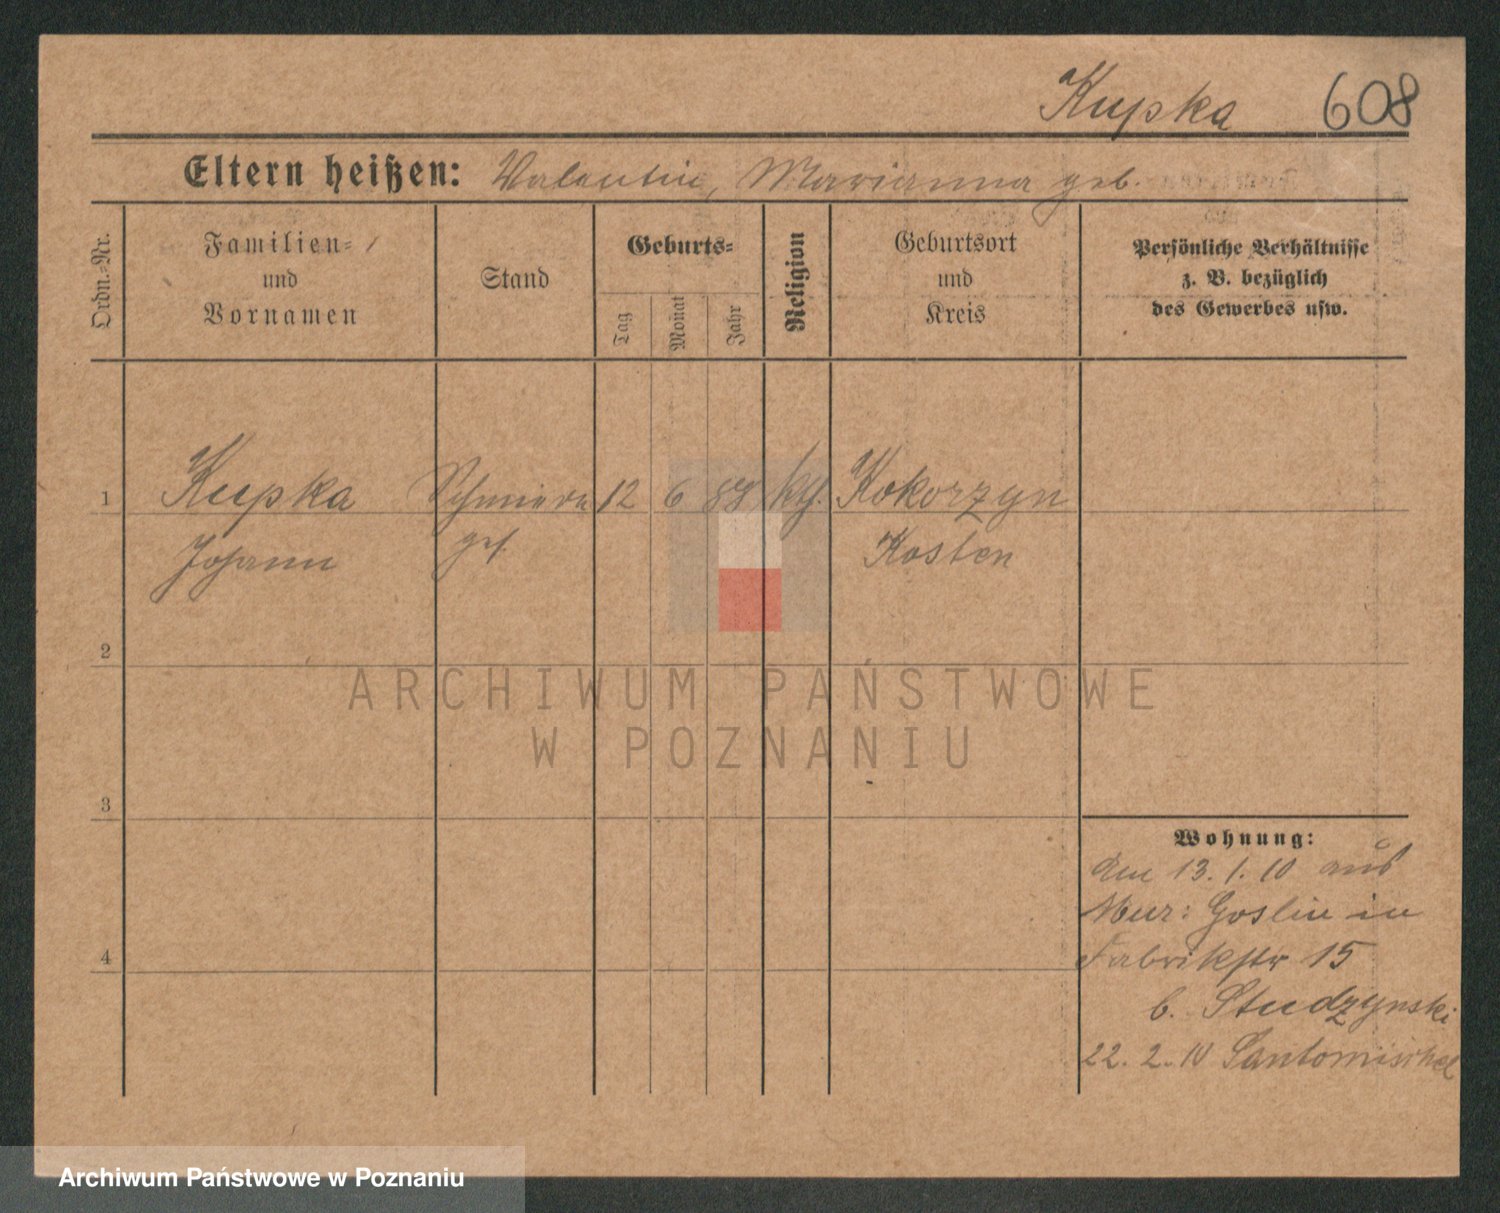 Kupka 608
Eltern heißen: Valentin, Marianna geb.
Ordn.=Nr.
Familien=
und
Vornamen
Stand
Geburts=
Tag
Monat
Jahr
Religion
Geburtsort
und
Kreis
Persönliche Verhältnisse
z. B. bezüglich
des Gewerbes usw.
1 Kupka 12 6 88 kth. Kokorzyn
Johann ges. Kosten
2
ARCHIWUM PAŃSTWOWE
W POZNANIU
3
Wohnung:
Am 13.1.10 aus
Mur: Goslin in
4 Fabrikstr 15
b. Studzynski
22. 2. 10 Santomischel
Archiwum Państwowe w Poznaniu